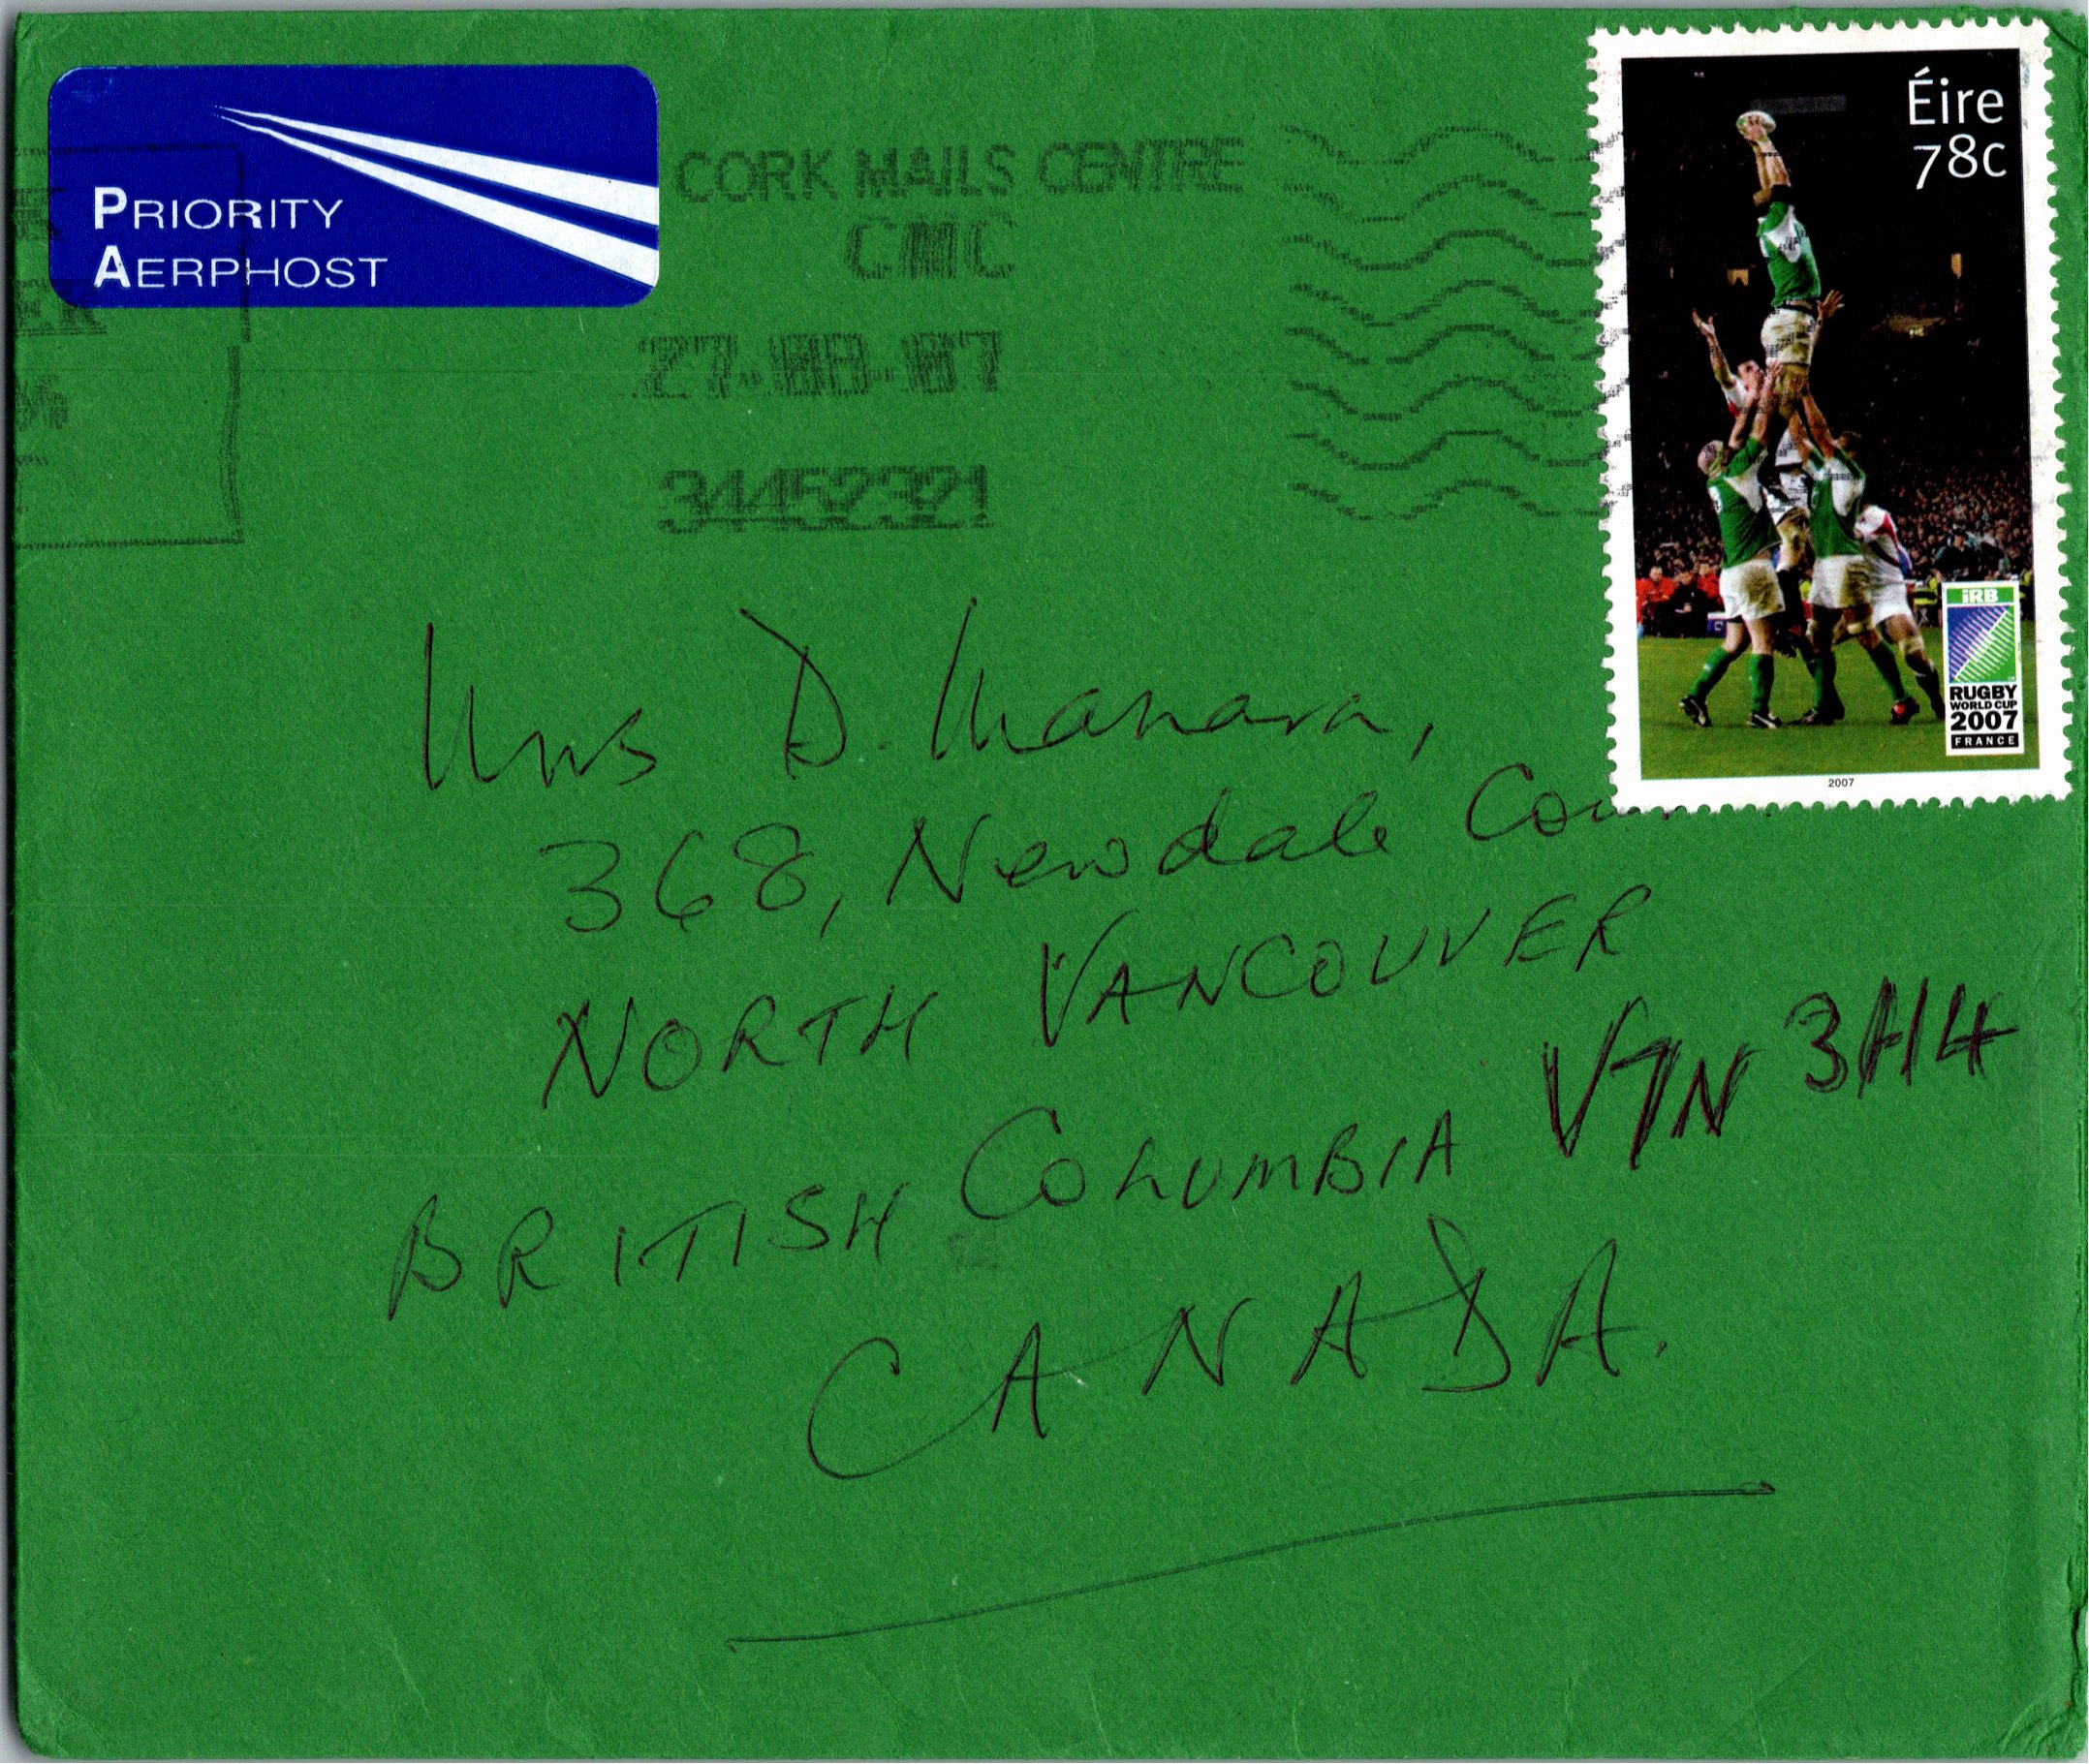 PRIORITY
AERPHOST
CORK MAILS CENTRE
CMC
34452321
Éire
78c
iRB
RUGBY
WORLD CUP
2007
FRANCE
2007
Mrs D.
368, Newdale
NORTH VANCOUVER
BRITISH COLUMBIA V7N 3H4
CANADA.